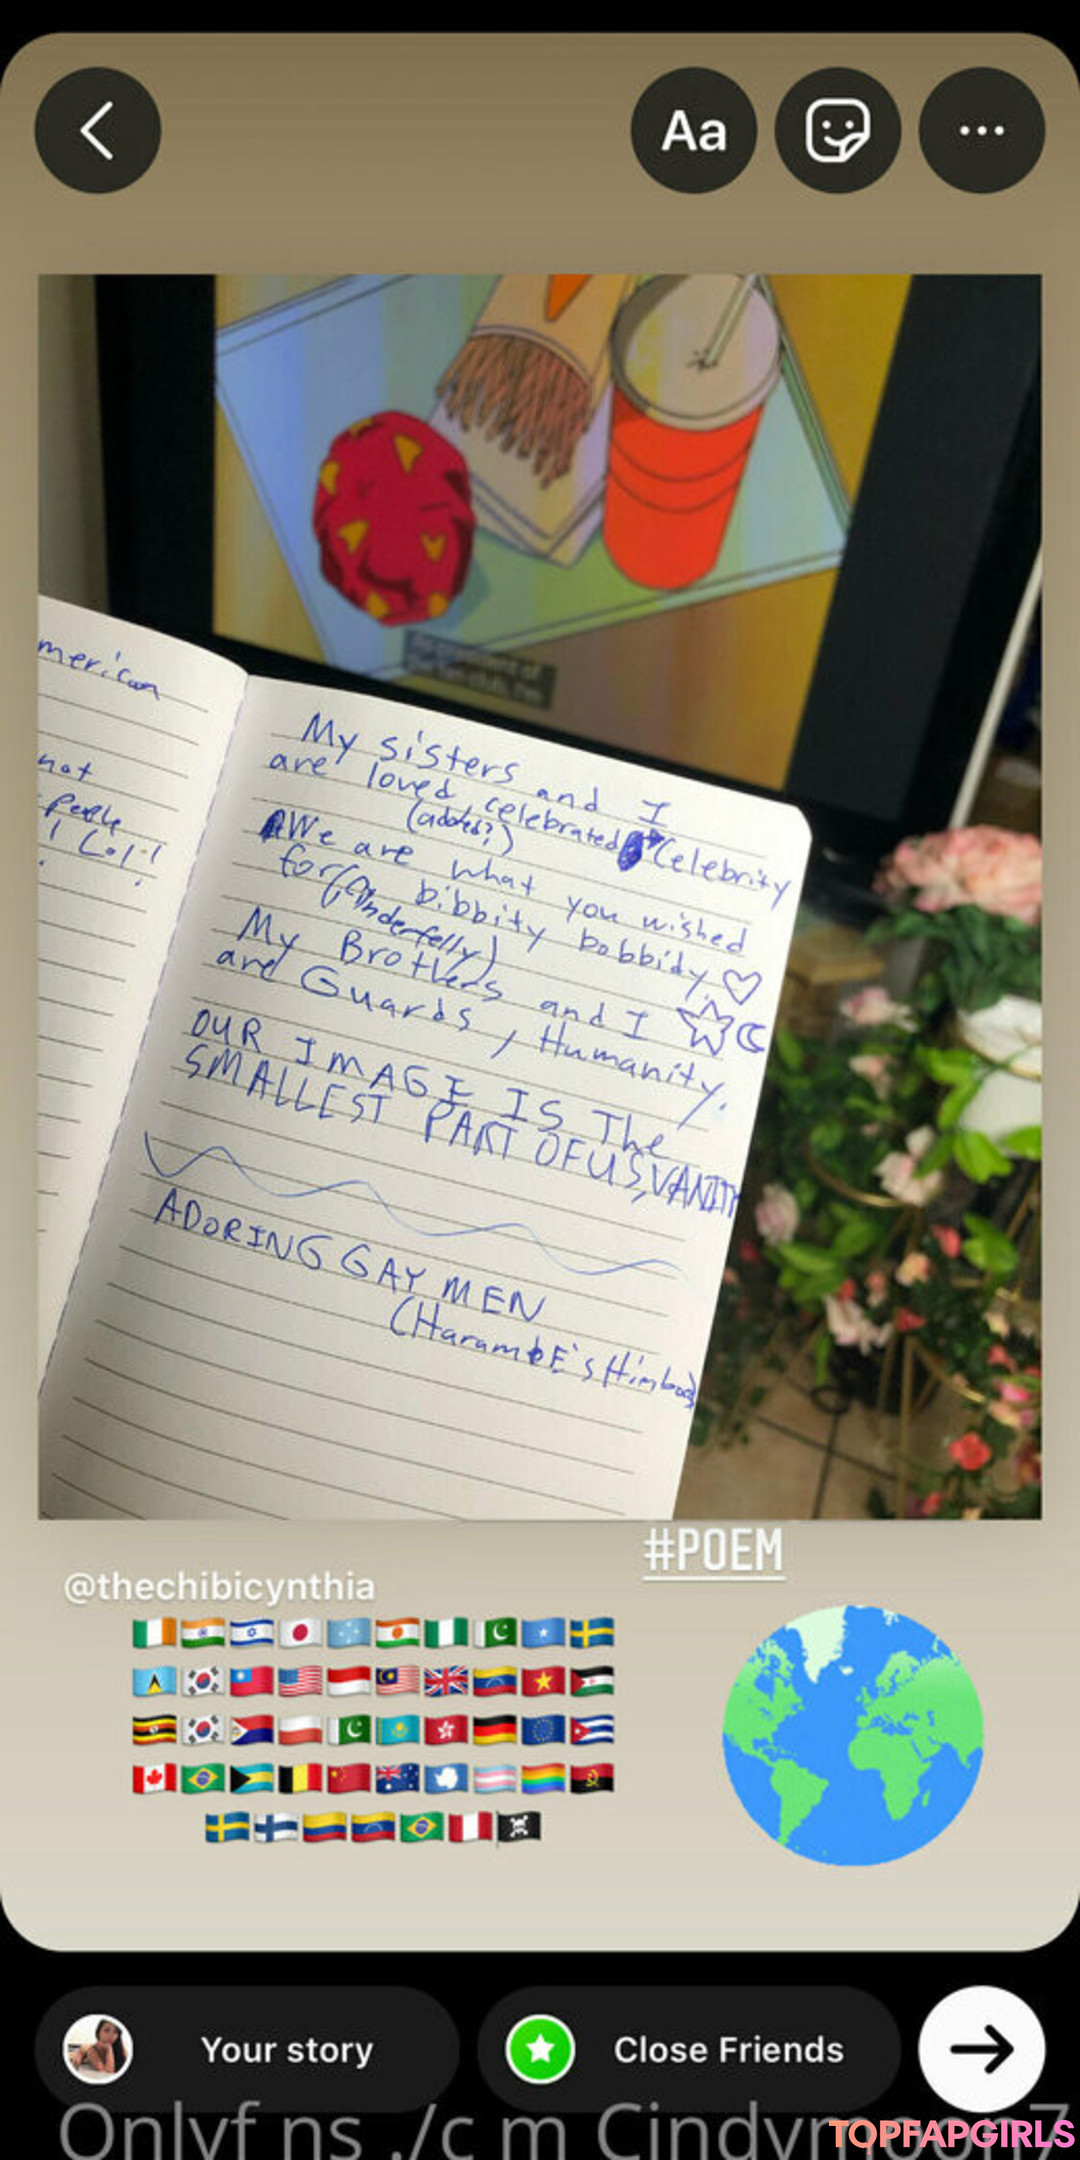 Aa
merican
not
People
! Lol!
My sisters and I
are loved celebrated Celebrity
(added?)
We are what you wished
for bibbity bobbidy
(Cinderfelly)
My Brothers and I
are Guards, Humanity.
OUR IMAGE IS The
SMALLEST PART OF US, VANITY
ADORING GAY MEN
(HarambE's Himbos)
#POEM
@thechibicynthia
Your story
Close Friends
TOPFAPGIRLS